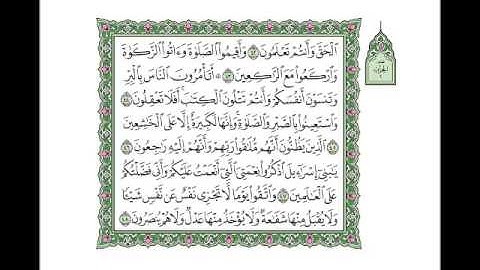 الْحَقَّ وَأَنتُمْ تَعْلَمُونَ ٤٢ وَأَقِيمُوا الصَّلَوٰةَ وَءَاتُوا الزَّكَوٰةَ
وَارْكَعُوا مَعَ الرَّٰكِعِينَ ٤٣ ۞ أَتَأْمُرُونَ النَّاسَ بِالْبِرِّ
وَتَنسَوْنَ أَنفُسَكُمْ وَأَنتُمْ تَتْلُونَ الْكِتَٰبَ ۚ أَفَلَا تَعْقِلُونَ ٤٤
وَاسْتَعِينُوا بِالصَّبْرِ وَالصَّلَوٰةِ ۚ وَإِنَّهَا لَكَبِيرَةٌ إِلَّا عَلَى الْخَٰشِعِينَ ٤٥
الَّذِينَ يَظُنُّونَ أَنَّهُم مُّلَٰقُوا رَبِّهِمْ وَأَنَّهُمْ إِلَيْهِ رَٰجِعُونَ ٤٦
يَٰبَنِي إِسْرَٰٓءِيلَ اذْكُرُوا نِعْمَتِيَ الَّتِي أَنْعَمْتُ عَلَيْكُمْ وَأَنِّي فَضَّلْتُكُمْ
عَلَى الْعَٰلَمِينَ ٤٧ وَاتَّقُوا يَوْمًا لَّا تَجْزِي نَفْسٌ عَن نَّفْسٍ شَيْـًٔا
وَلَا يُقْبَلُ مِنْهَا شَفَٰعَةٌ وَلَا يُؤْخَذُ مِنْهَا عَدْلٌ وَلَا هُمْ يُنصَرُونَ ٤٨